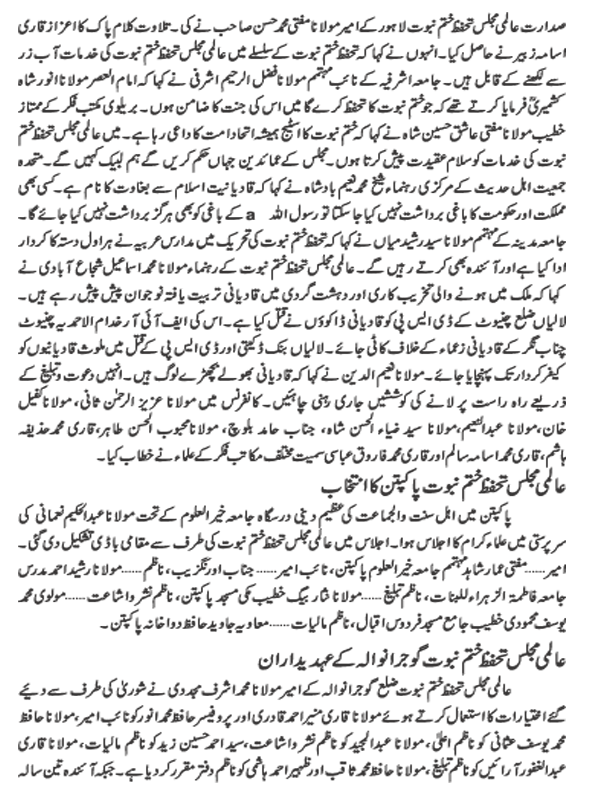 صدارت عالمی مجلس تحفظ ختم نبوت لاہور کے امیر مولانا مفتی محمد حسن صاحب نے کی۔ تلاوت کلام پاک کا اعزاز قاری
اسامہ زبیر نے حاصل کیا۔ انہوں نے کہا کہ تحفظ ختم نبوت کے سلسلے میں عالمی مجلس تحفظ ختم نبوت کی خدمات آب زر
سے لکھنے کے قابل ہیں۔ جامعہ اشرفیہ کے نائب مہتمم مولانا فضل الرحیم اشرفی نے کہا کہ امام العصر مولانا انور شاہ
کشمیریؒ فرمایا کرتے تھے کہ جو ختم نبوت کا تحفظ کرے گا میں اس کی جنت کا ضامن ہوں۔ بریلوی مکتب فکر کے ممتاز
خطیب مولانا مفتی عاشق حسین شاہ نے کہا کہ ختم نبوت کا اسٹیج ہمیشہ اتحاد امت کا داعی رہا ہے۔ میں عالمی مجلس تحفظ ختم
نبوت کی خدمات کو سلام عقیدت پیش کرتا ہوں۔ مجلس کے عمائدین جہاں حکم کریں گے ہم لبیک کہیں گے۔ متحدہ
جمعیت اہل حدیث کے مرکزی رہنماء شیخ محمد نعیم بادشاہ نے کہا کہ قادیانیت اسلام سے بغاوت کا نام ہے۔ کسی بھی
مملکت اور حکومت کا باغی برداشت نہیں کیا جاسکتا تو رسول اللہ a کے باغی کو بھی ہرگز برداشت نہیں کیا جائے گا۔
جامعہ مدینہ کے مہتمم مولانا سید رشید میاں نے کہا کہ تحفظ ختم نبوت کی تحریک میں مدارس عربیہ نے ہراول دستہ کا کردار
ادا کیا ہے اور آئندہ بھی کرتے رہیں گے۔ عالمی مجلس تحفظ ختم نبوت کے رہنماء مولانا محمد اسماعیل شجاع آبادی نے
کہا کہ ملک میں ہونے والی تخریب کاری اور دہشت گردی میں قادیانی تربیت یافتہ نوجوان پیش پیش رہے ہیں۔
لالیاں ضلع چنیوٹ کے ڈی ایس پی کو قادیانی ڈاکوؤں نے قتل کیا ہے۔ اس کی ایف آئی آر خدام الاحمدیہ چنیوٹ
چناب نگر کے قادیانی زعماء کے خلاف کاٹی جائے۔ لالیاں بنک ڈکیتی اور ڈی ایس پی کے قتل میں ملوث قادیانیوں کو
کیفر کردار تک پہنچایا جائے۔ مولانا نعیم الدین نے کہا کہ قادیانی بھولے بچھڑے لوگ ہیں۔ انہیں دعوت و تبلیغ کے
ذریعے راہ راست پر لانے کی کوششیں جاری رہنی چاہئیں۔ کانفرنس میں مولانا عزیز الرحمٰن ثانی، مولانا کفیل
خان، مولانا عبدالنعیم، مولانا سید ضیاء الحسن شاہ، جناب حامد بلوچ، مولانا محبوب الحسن طاہر، قاری محمد حذیفہ
ہاشم، قاری محمد اسامہ سالم اور قاری محمد فاروق عباسی سمیت مختلف مکاتب فکر کے علماء نے خطاب کیا۔
عالمی مجلس تحفظ ختم نبوت پاکپتن کا انتخاب
پاکپتن میں اہل سنت والجماعت کی عظیم دینی درسگاہ جامعہ خیر العلوم کے تحت مولانا عبدالحکیم نعمانی کی
سرپرستی میں علماء کرام کا اجلاس ہوا۔ اجلاس میں عالمی مجلس تحفظ ختم نبوت کی طرف سے مقامی باڈی تشکیل دی گئی۔
امیر...... مفتی عمار شاہد مہتمم جامعہ خیر العلوم پاکپتن، نائب امیر...... جناب اورنگزیب، ناظم...... مولانا رشید احمد مدرس
جامعہ فاطمۃ الزہراء للبنات، ناظم تبلیغ...... مولانا نثار بیگ خطیب مکی مسجد پاکپتن، ناظم نشر و اشاعت...... مولوی محمد
یوسف محمودی خطیب جامع مسجد فردوس اقبال، ناظم مالیات...... معاویہ جاوید حافظ دواخانہ پاکپتن۔
عالمی مجلس تحفظ ختم نبوت گوجرانوالہ کے عہدیداران
عالمی مجلس تحفظ ختم نبوت ضلع گوجرانوالہ کے امیر مولانا محمد اشرف مجددی نے شوریٰ کی طرف سے دیئے
گئے اختیارات کا استعمال کرتے ہوئے مولانا قاری منیر احمد قادری اور پروفیسر حافظ محمد انور کو نائب امیر، مولانا حافظ
محمد یوسف عثمانی کو ناظم اعلیٰ، مولانا عبدالمجید کو ناظم نشر و اشاعت، سید احمد حسین زید کو ناظم مالیات، مولانا قاری
عبدالغفور آرائیں کو ناظم تبلیغ، مولانا حافظ محمد ثاقب اور ظہیر احمد ہاشمی کو ناظم دفتر مقرر کردیا ہے۔ جبکہ آئندہ تین سالہ